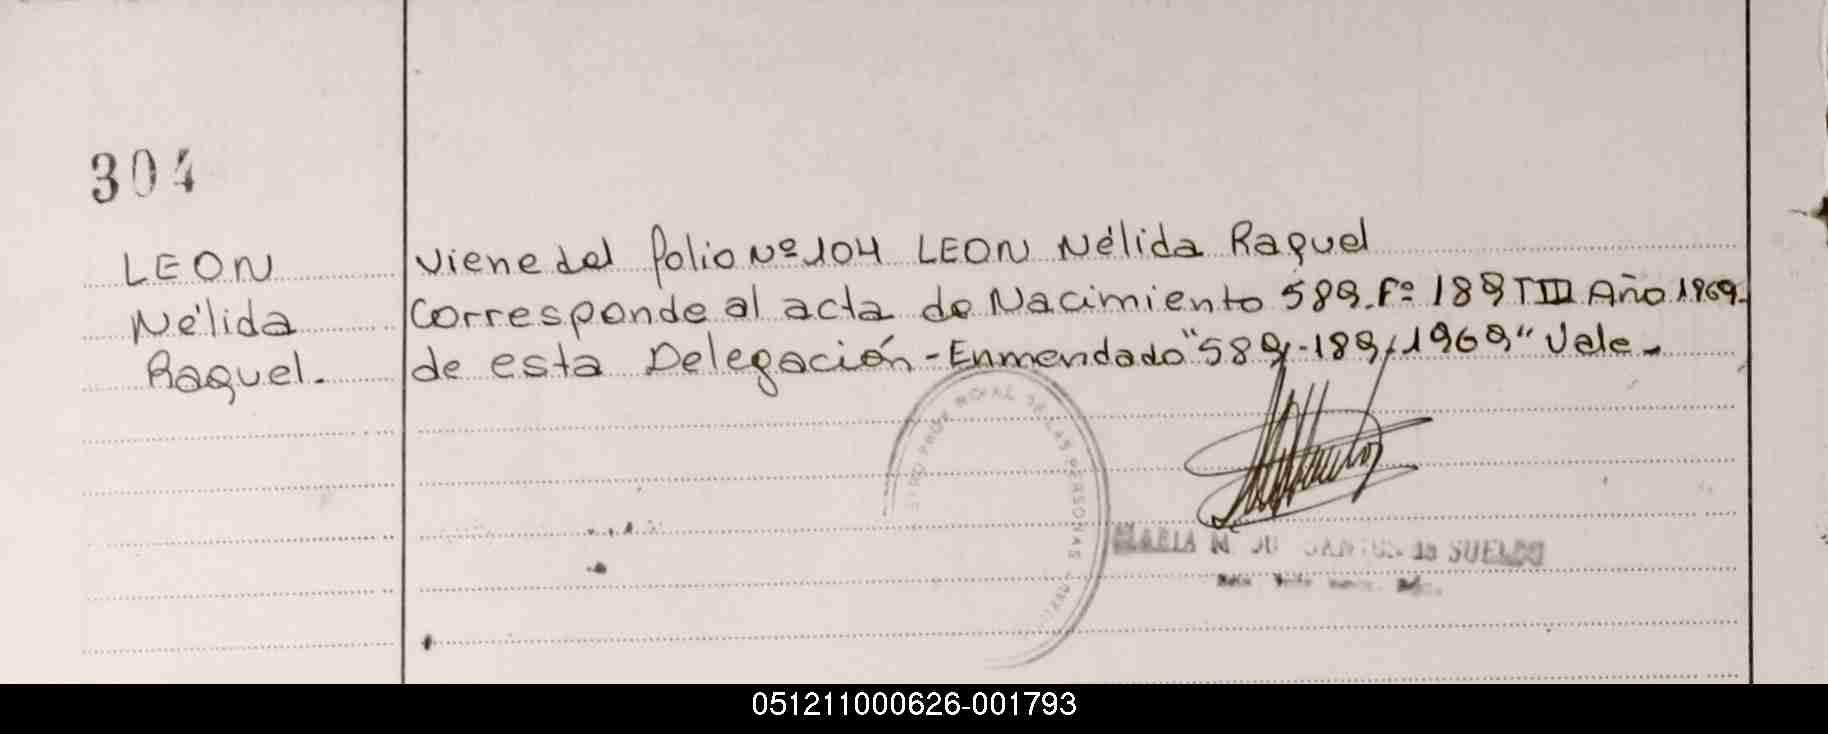 304
LEON
Nélida
Raquel.
Viene del folio Nº 104 LEON Nélida Raquel
Corresponde al acta de Nacimiento 589. Fº 189 TIII Año 1969.
de esta Delegación - Enmendado "589-189-1969" Vale -
PERSONAS
MARIA SUELDO
051211000626-001793